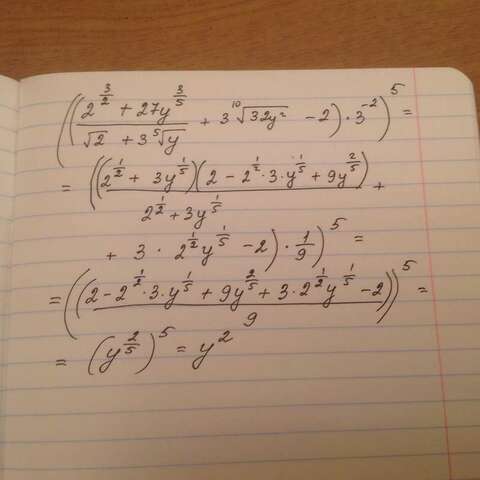 ((( (2^{3/2} + 27y^{3/5}) / (√2 + 3 ⁵√y) + 3 ¹⁰√(32y²) - 2) · 3^{-2})^5 =
= (( (2^{1/2} + 3y^{1/5})(2 - 2^{1/2} · 3 · y^{1/5} + 9y^{2/5}) / (2^{1/2} + 3y^{1/5}) +
+ 3 · 2^{1/2} y^{1/5} - 2) · 1/9)^5 =
= (( (2 - 2^{1/2} · 3 · y^{1/5} + 9y^{2/5} + 3 · 2^{1/2} y^{1/5} - 2) / 9 ))^5 =
= (y^{2/5})^5 = y^2